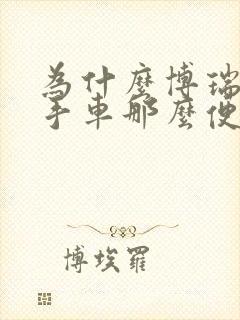 為什麼博瑞
手車那麼便
博埃羅